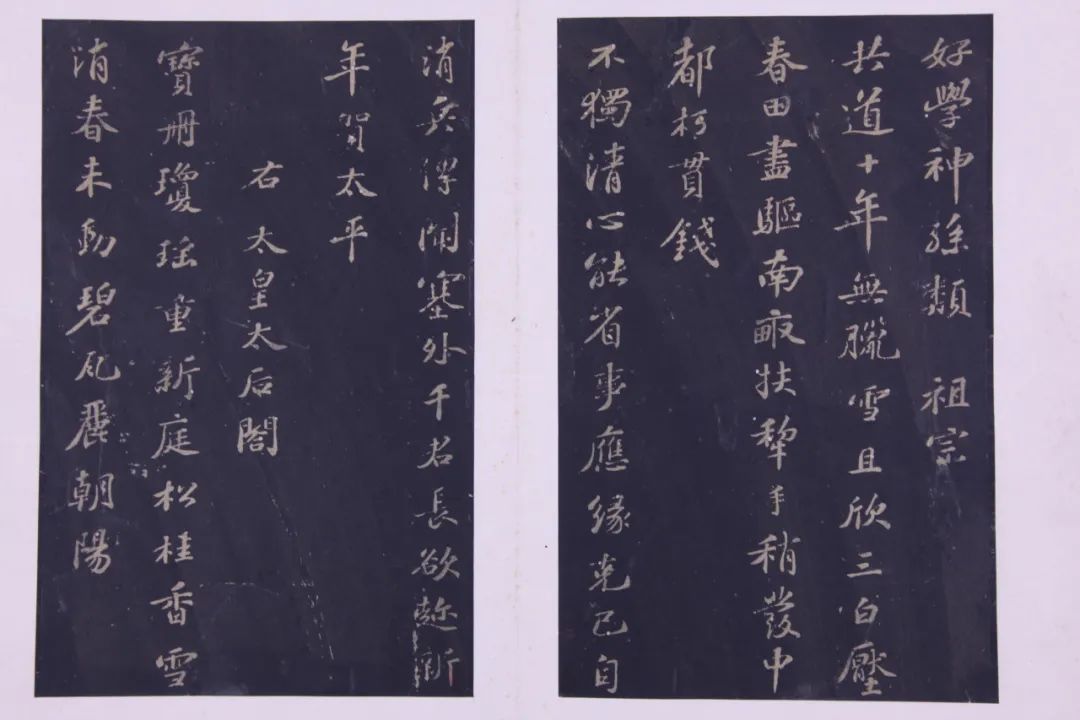 好學神孫類 祖宗
共道十年無臘雪且欣三白壓
春田盡驅南畝扶犂手稍發中
都朽貫錢
不獨清心能省事應緣克己自
消兵傳聞塞外千君長欲趂新
年賀太平
右太皇太后閤
寶冊瓊瑶重新庭松桂香雪
消春未動碧瓦麗朝陽